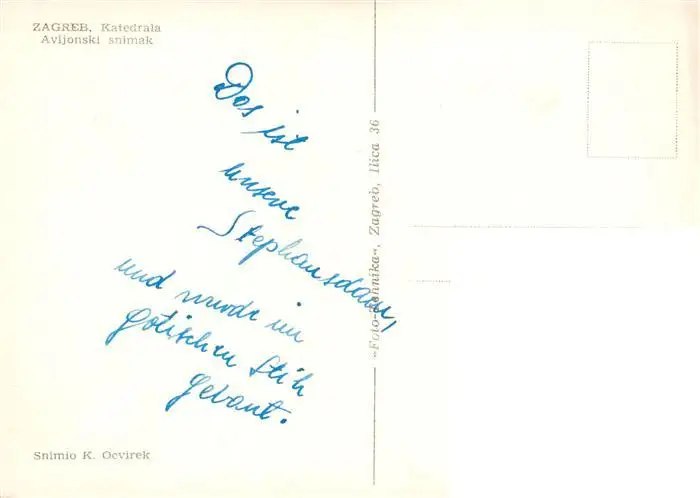 ZAGREB, Katedrala
Avijonski snimak
Das ist
unsere
Stephansdom,
und wurde im
gotischen Stih
gebaut.
Snimio K. Ocvirek
»Foto-tehnika«, Zagreb, Ilica 36